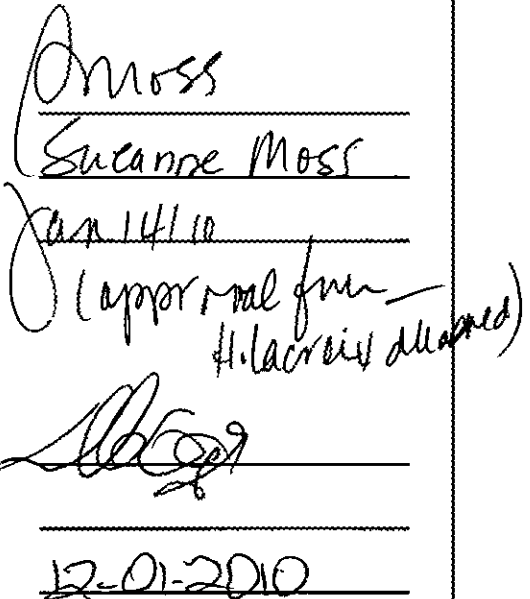 SMoss
Suzanne Moss
Jan 14/10
(approval from
H. Lacroix attached)
12-01-2010